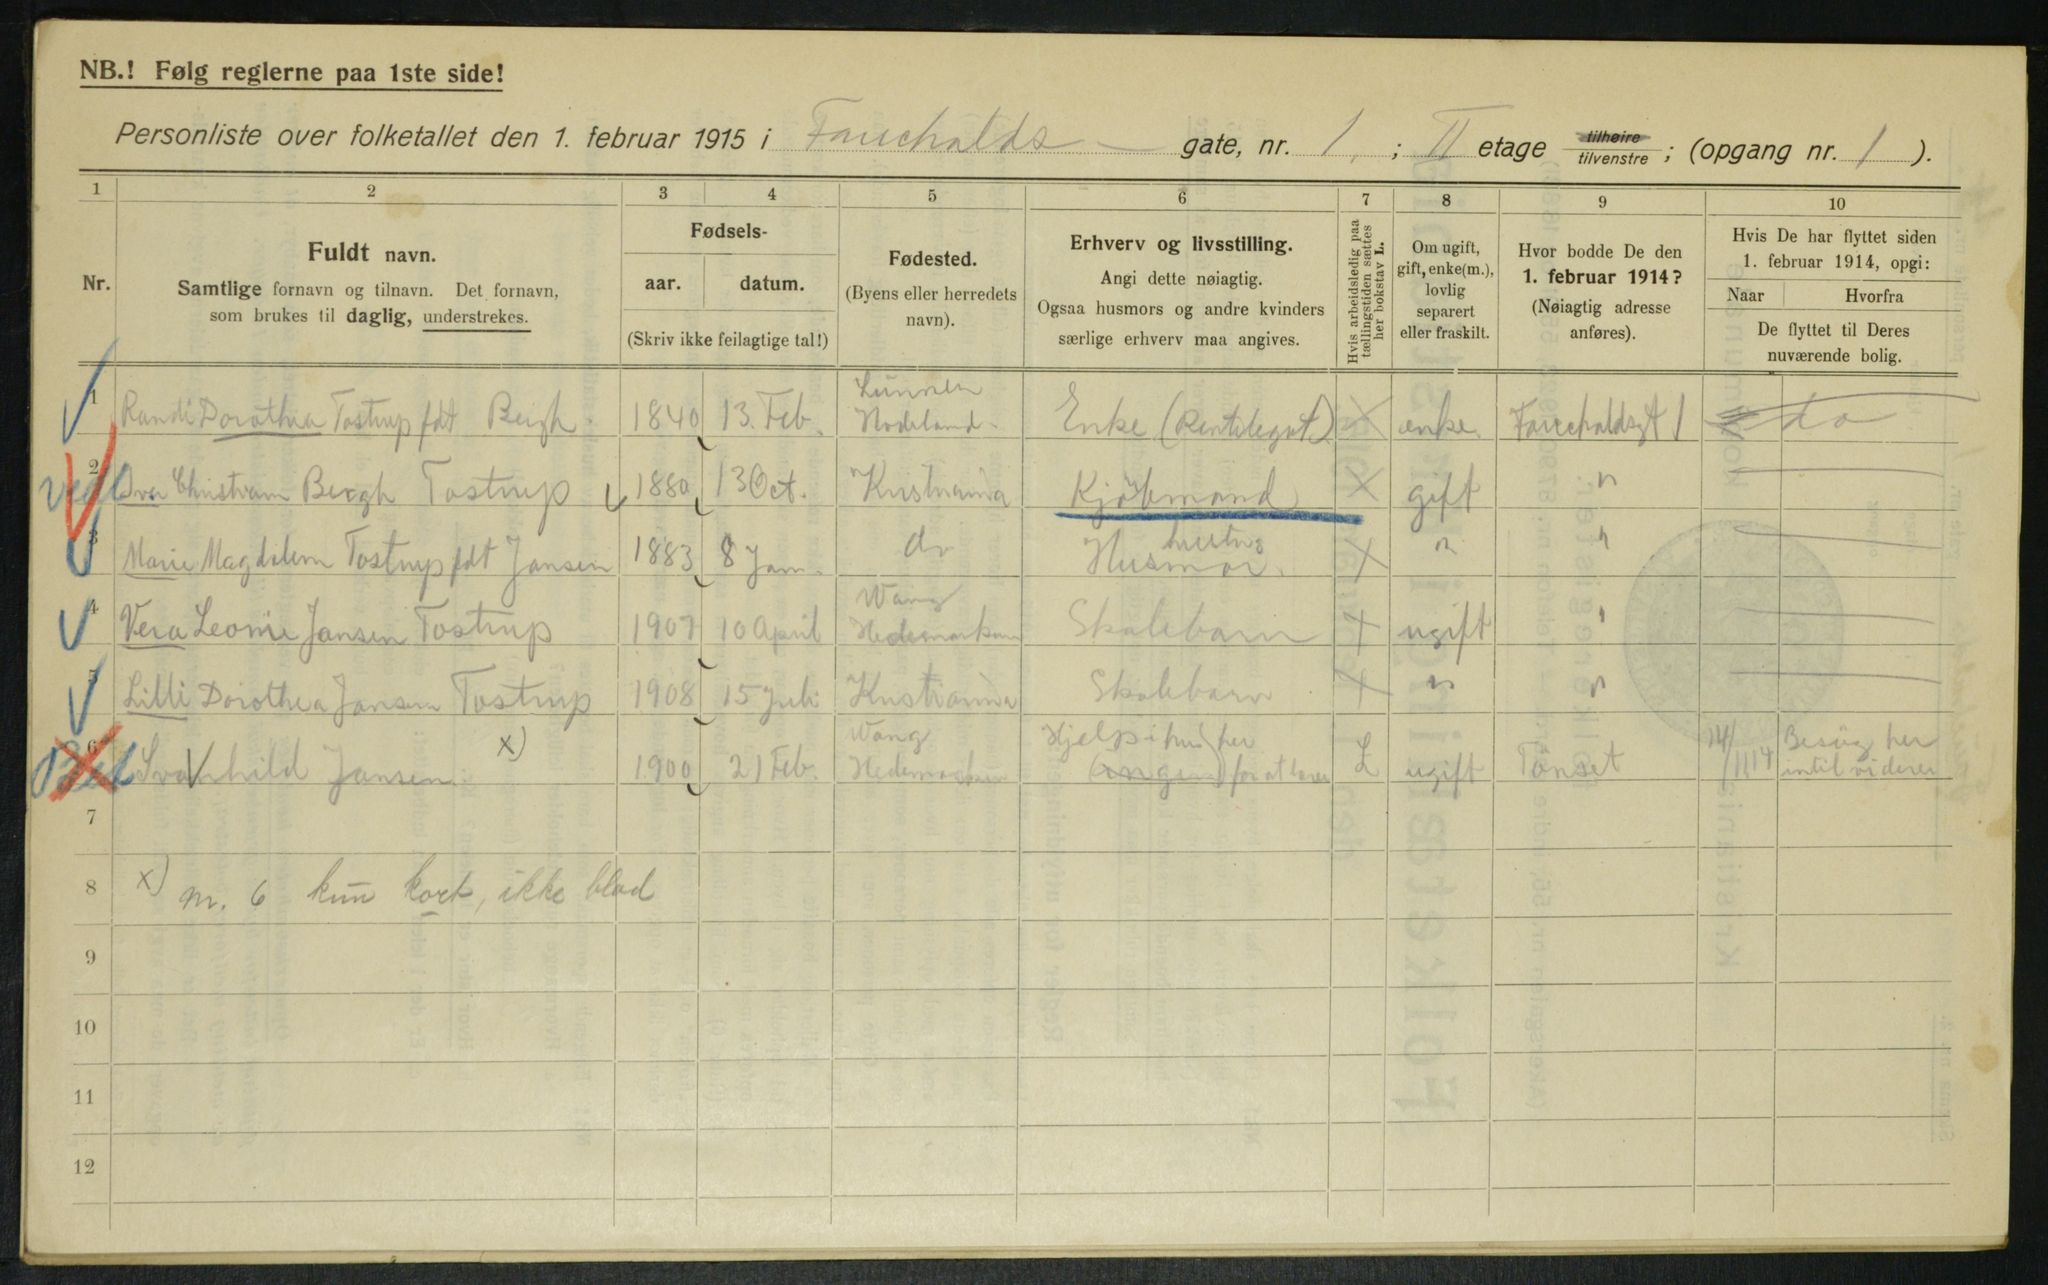 NB.! Følg reglerne paa 1ste side!
Personliste over folketallet den 1. februar 1915 i Fauchalds gate, nr. 1. ; II etage tilhøire tilvenstre ; (opgang nr. 1 ).
1 2 3 4 5 6 7 8 9 10
Nr.
Fuldt navn.
Samtlige fornavn og tilnavn. Det fornavn,
som brukes til daglig, understrekes.
Fødsels-
aar. datum.
(Skriv ikke feilagtige tal!)
Fødested.
(Byens eller herredets
navn).
Erhverv og livsstilling.
Angi dette nøiagtig.
Ogsaa husmors og andre kvinders
særlige erhverv maa angives.
Hvis arbeidsledig paa
tællingstiden sættes
her bokstav L.
Om ugift,
gift, enke(m.),
lovlig
separert
eller fraskilt.
Hvor bodde De den
1. februar 1914?
(Nøiagtig adresse
anføres).
Hvis De har flyttet siden
1. februar 1914, opgi:
Naar Hvorfra
De flyttet til Deres
nuværende bolig.
1 Randi Dorothea Tostrup fdt Bergh 1840 13. Feb. Hadeland Enke ( ) X enke Fauchaldsgt 1 do
2 Christian Bergh Tostrup 1880 13 Oct. Kristiania Kjøbmand X gift "
3 Marie Magdalem Tostrup fdt Jansen 1883 8 Jan. do Husmor. hustru X " "
4 Vera Leonie Jansen Tostrup 1907 10 April Wang Hedemarken Skolebarn X ugift "
5 Lilli Dorothea Jansen Tostrup 1908 15 Juli Kristiania Skolebarn X " "
6 Svanhild Jansen x) 1900 21 Feb. Wang Hedemarken Hjelp i hus her (ingen) for at lære L ugift Tonset 14/11 14 Besøg her intil videre
7
8 x) nr. 6 kun kort, ikke blad
9
10
11
12